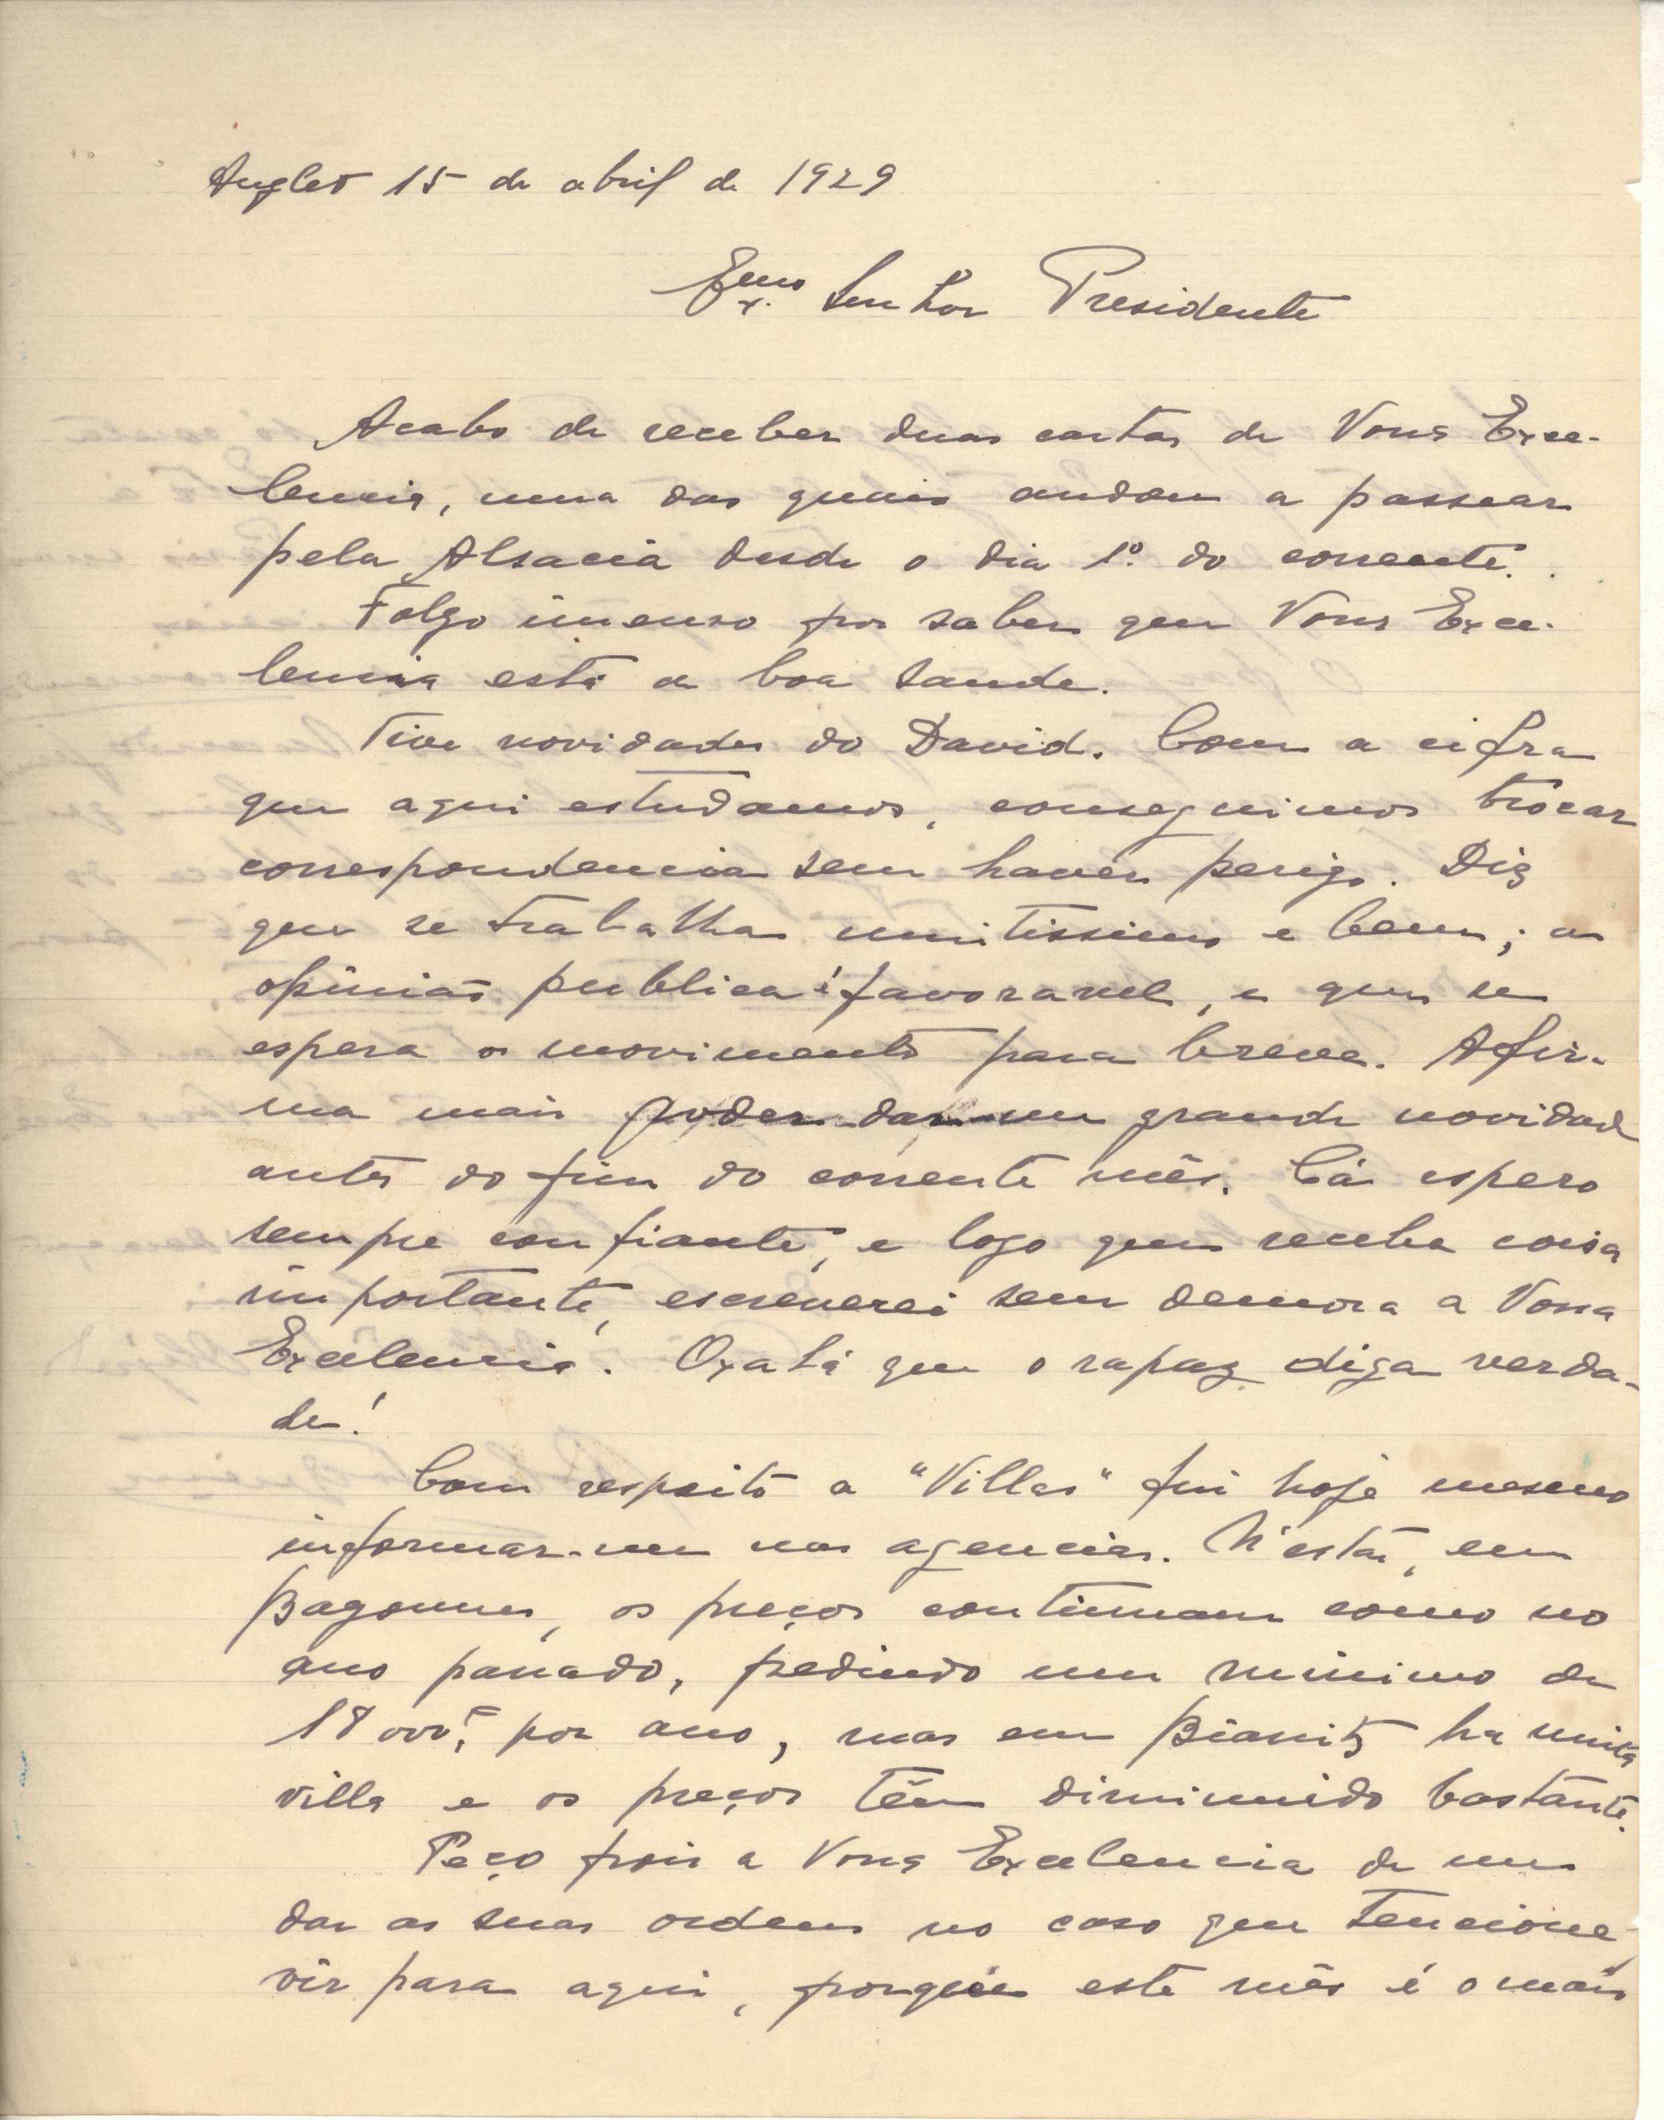 Anglet 15 de abril de 1929
Exmo. Senhor Presidente
Acabo de receber duas cartas de Vossa Exce-
lencia, uma das quais andou a passear
pela Alsacia desde o dia 1º. do corrente.
Folgo imenso por saber que Vossa Exce-
lencia está de boa saude.
Tive novidades do David. Com a cifra
que aqui estudamos, conseguimos trocar
correspondencia sem haver perigo. Diz
que se trabalha muitissimo e bem; a
opinião publica é favoravel, e que se
espera o movimento para breve. Afir-
ma mais poder dar-me grande novidade
antes do fim do corrente mês. Cá espero
sempre confiante, e logo que receba coisa
importante, escreverei sem demora a Vossa
Excelencia. Oxalá que o rapaz diga verda-
de!
Com respeito a "Villas" fui hoje mesmo
informar-me nas agencias. N'esta, em
Bayonne, os preços continuam como no
ano passado, pedindo um minimo de
18 000 F. por ano, mas em Biarritz ha muita
villa e os preços têm diminuido bastante.
Peço pois a Vossa Excelencia de me
dar as suas ordens no caso que tencione
vir para aqui, porque este mês é o mais